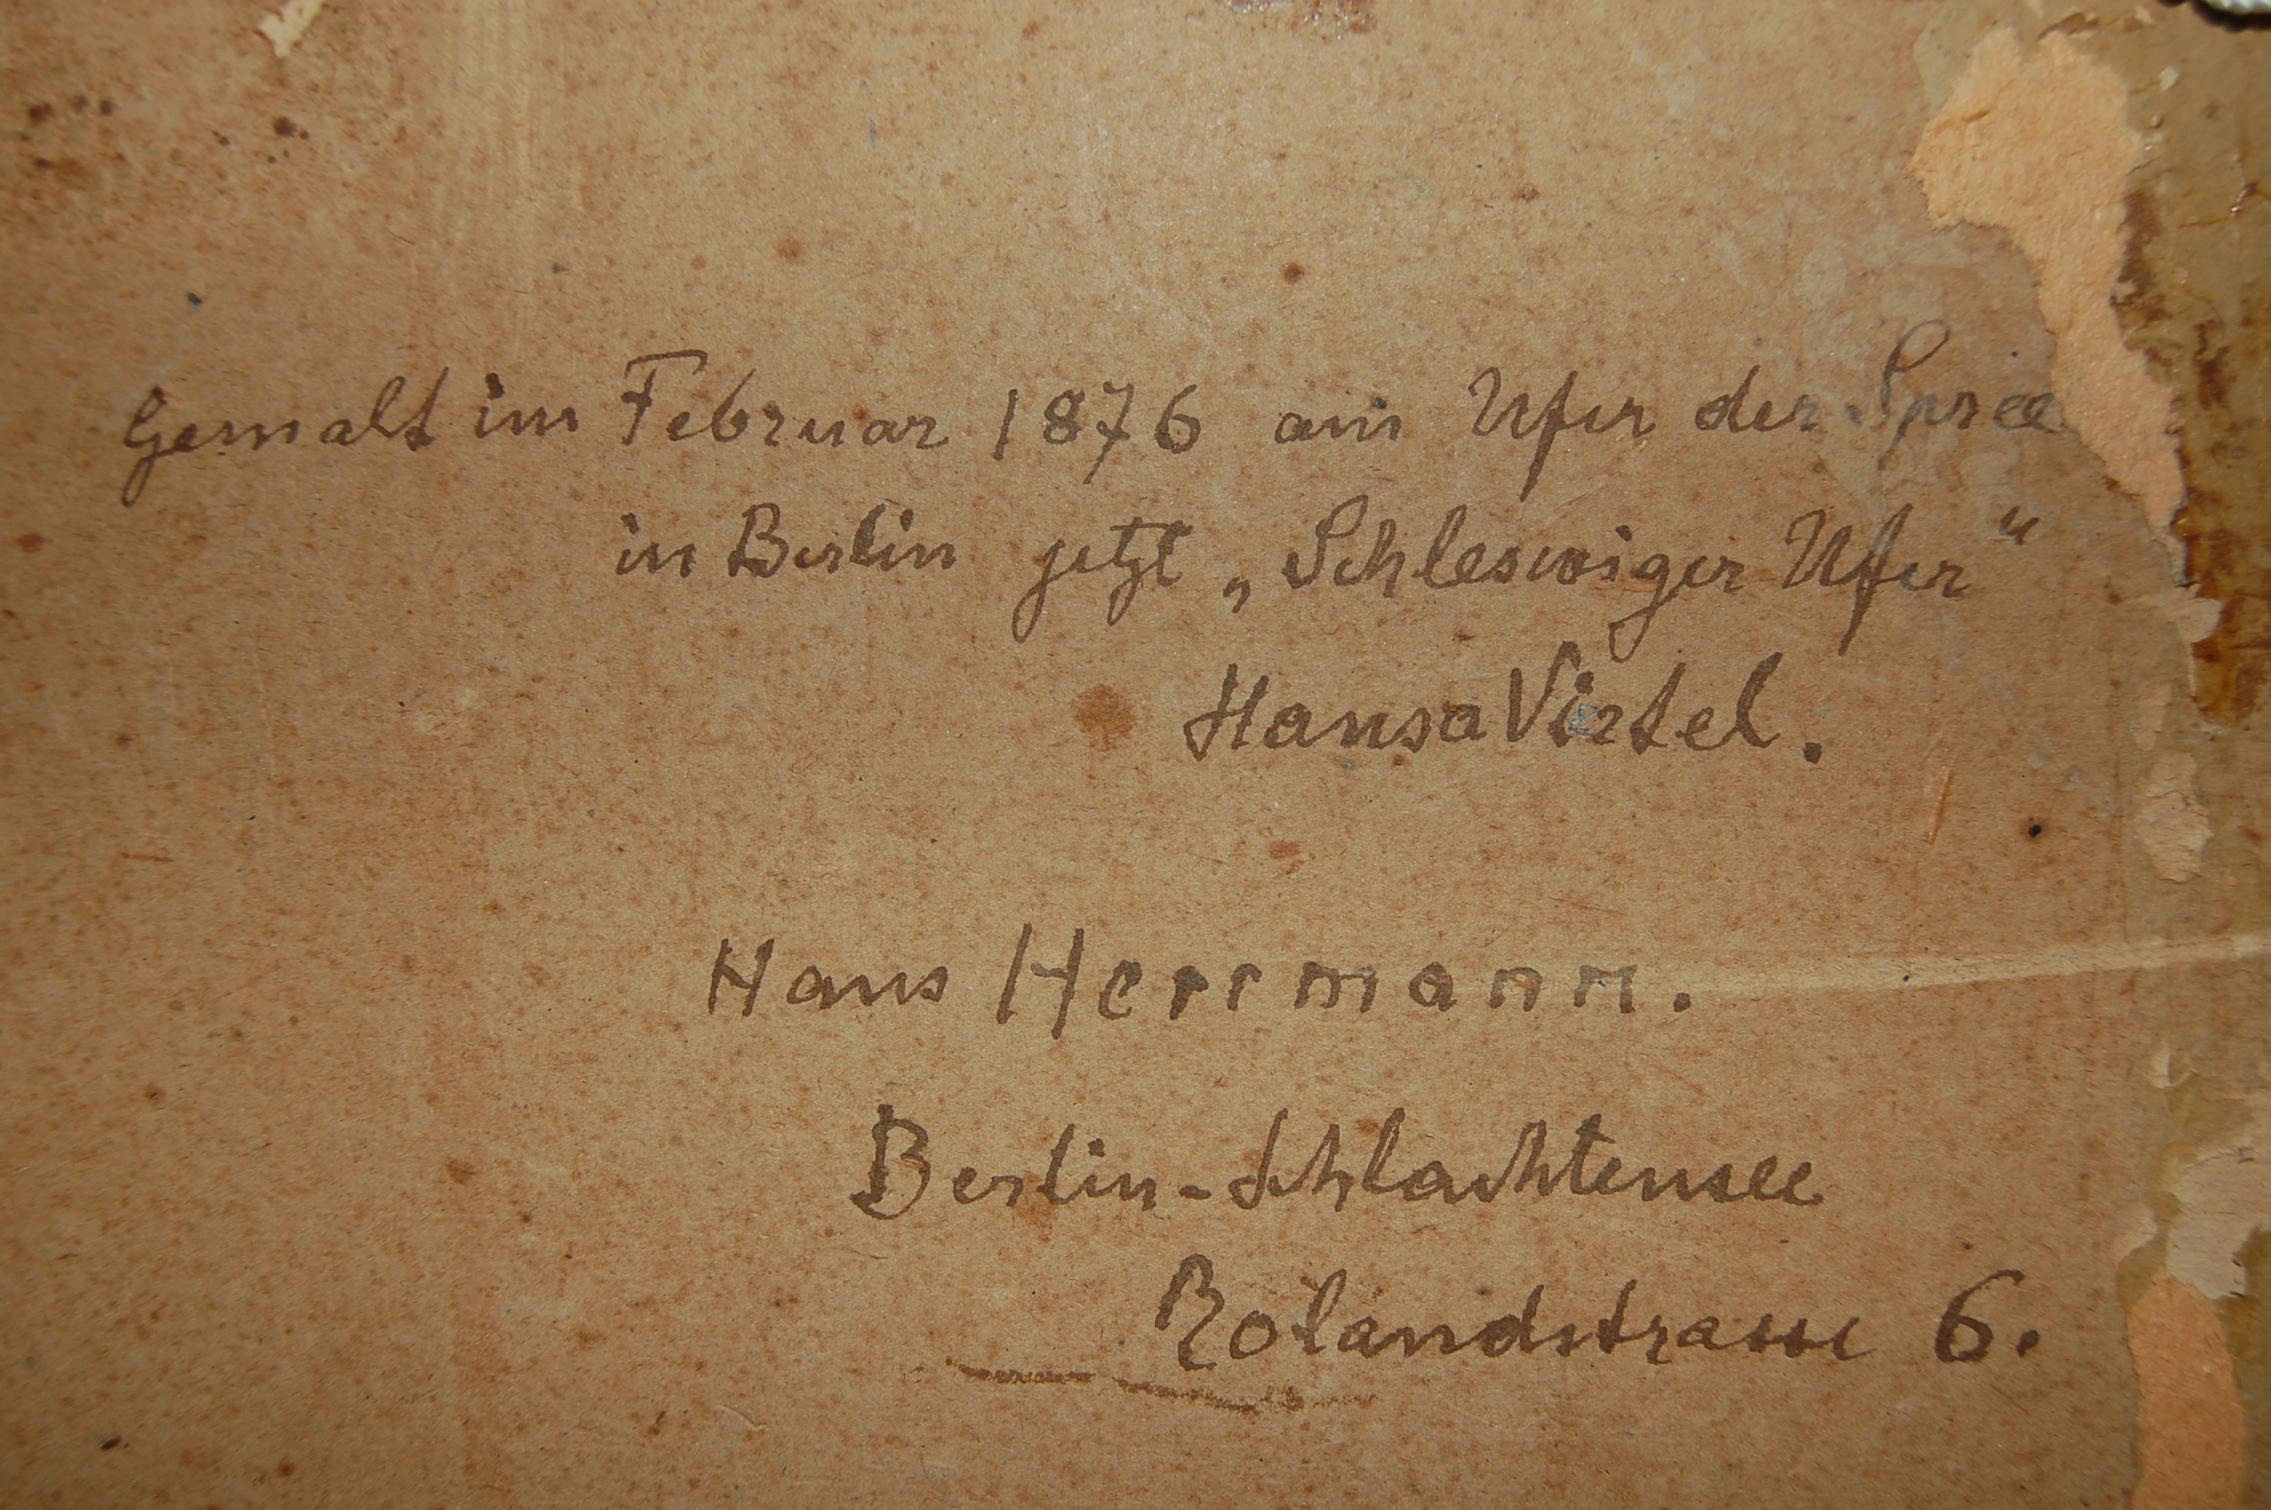 Gemalt im Februar 1876 am Ufer der Spree
in Berlin jetzt „Schleswiger Ufer“
Hansa Viertel.
Hans Herrmann.
Berlin-Schlachtensee
Rolandstrasse 6.